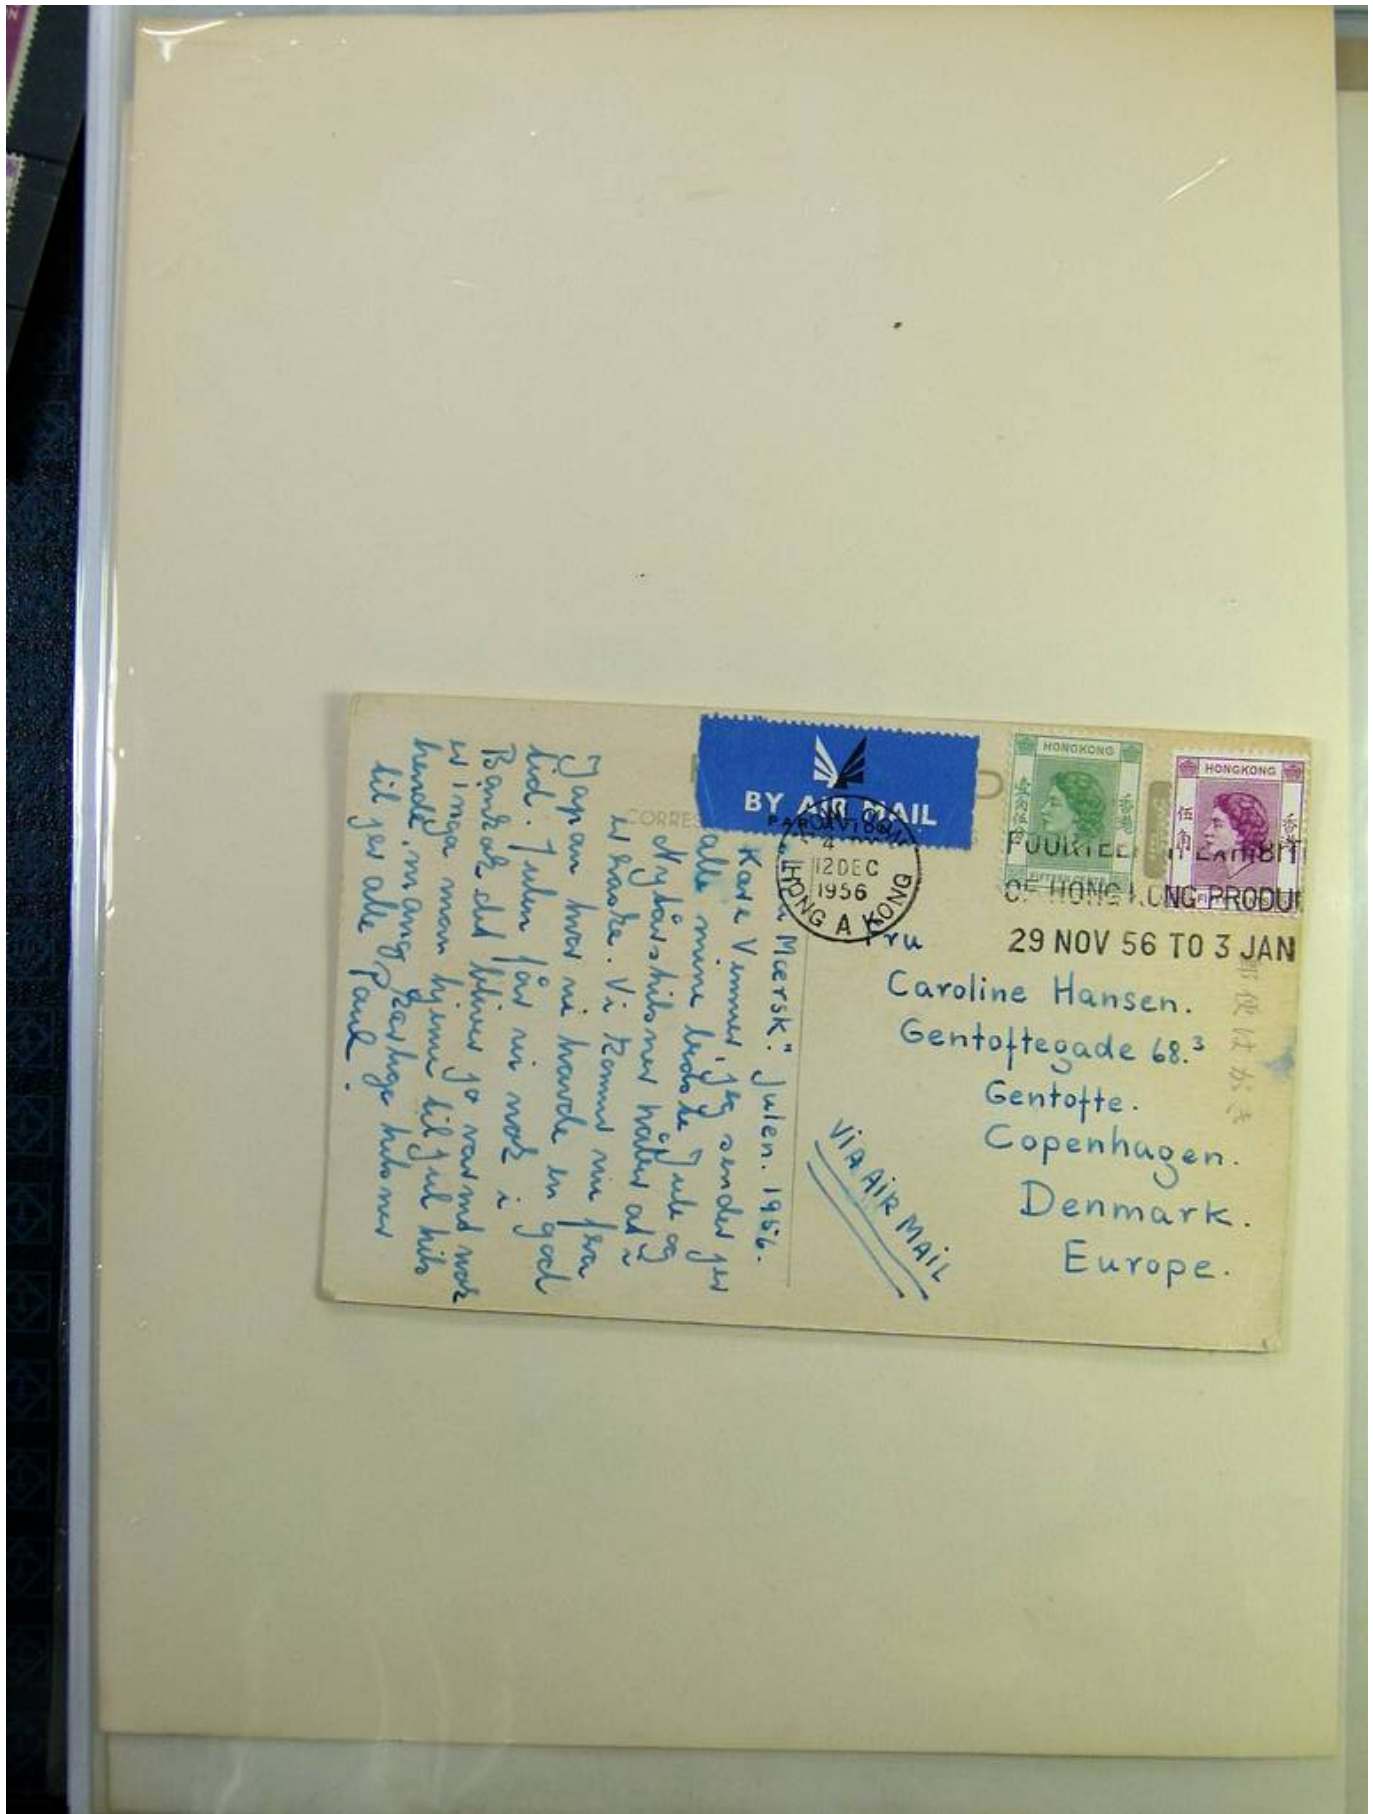 BY AIR MAIL
PAR AVION
HONGKONG
壹角伍分
香港
FIFTEEN CENTS
HONGKONG
伍角
香港
4
12 DEC
1956
HONG A KONG
EXHIBIT
OF HONG KONG PRODU
29 NOV 56 TO 3 JAN
CORRES
Fru
Caroline Hansen.
Gentoftegade 68.³
Gentofte.
Copenhagen.
Denmark.
Europe.
VIA AIR MAIL
郵便はがき
Mærsk." Julen. 1956.
Kære Venner, jeg sender jer
alle mine bedste Jule og
Nytårshilsner håber at i
er raske. Vi kommer nu fra
Japan hvor vi havde en god
tid. Julen får vi nok i
Bankok det bliver jo varmt nok
er inga man hjemme til jul hils
hende, mange kærlige hilsner
til jer alle Paul.